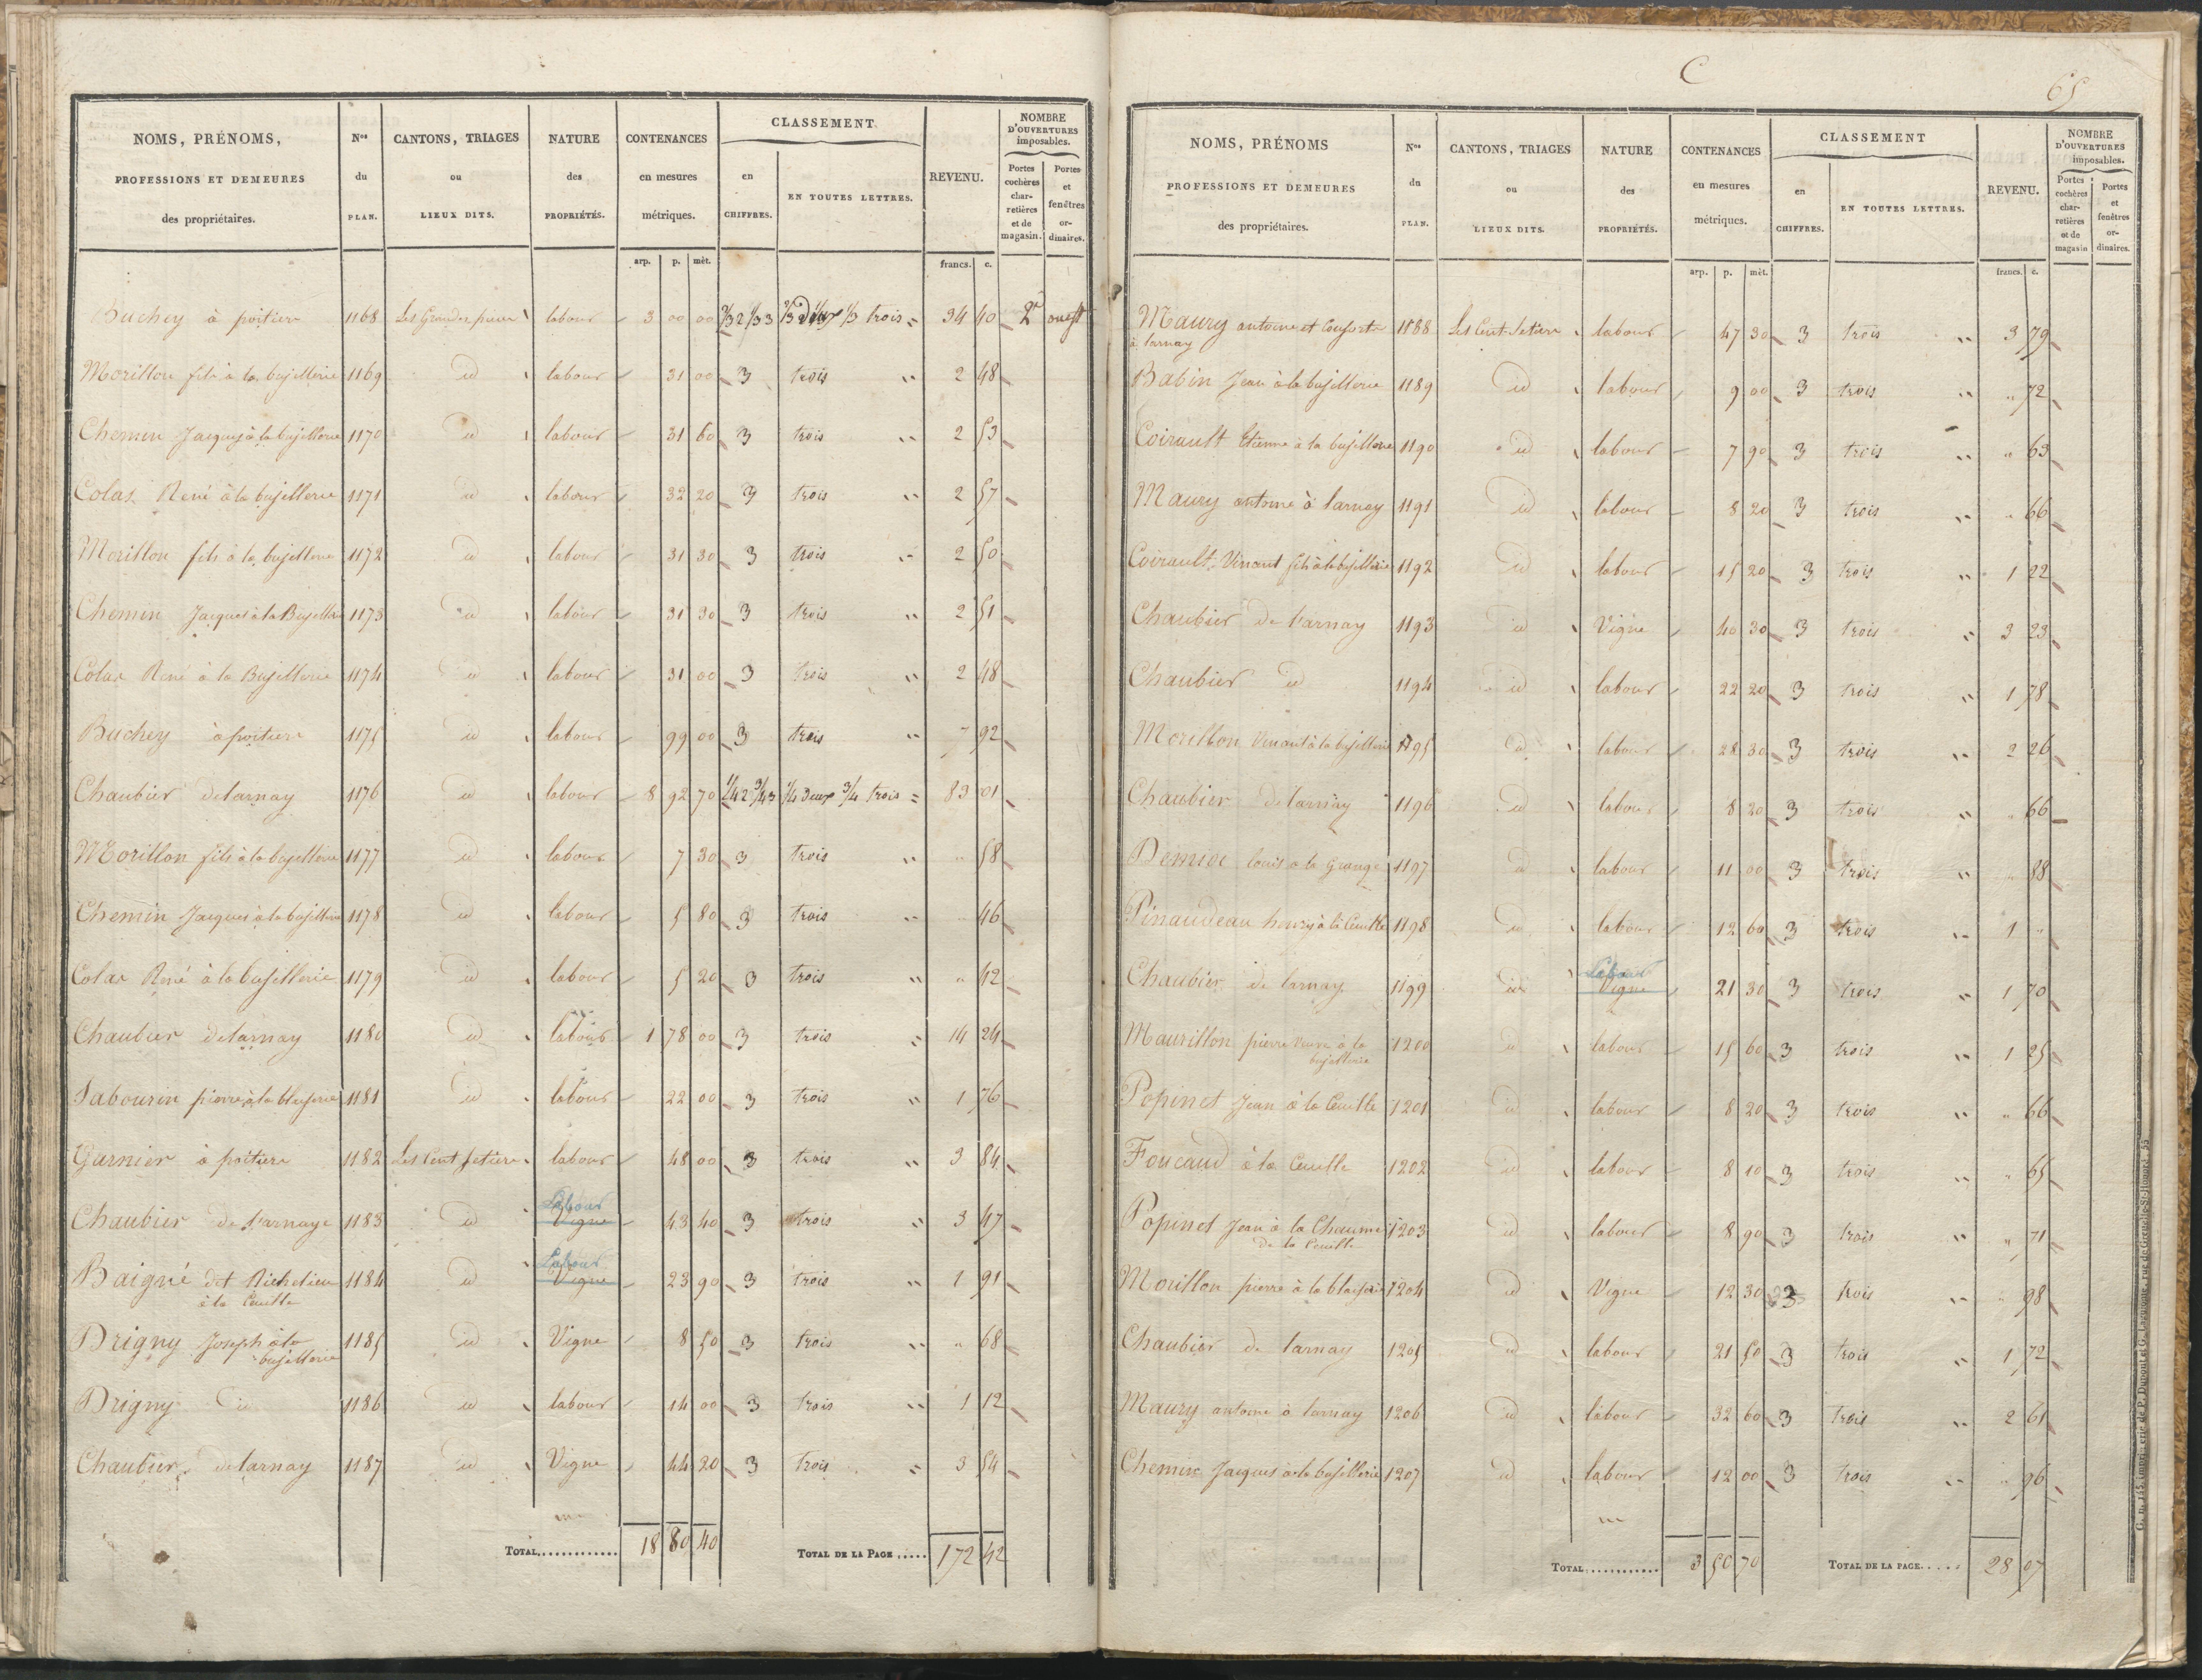 NOMS, PRÉNOMS, PROFESSIONS ET DEMEURES des propriétaires. | Nos du PLAN. | CANTONS, TRIAGES ou LIEUX DITS. | NATURE des PROPRIÉTÉS. | CONTENANCES en mesures métriques. | CLASSEMENT. en CHIFFRES. | EN TOUTES LETTRES. | REVENU. | NOMBRE D'OUVERTURES imposables. Portes cochères charretières et de magasin. | Portes et fenêtres ordinaires.
arp. p. mèt. francs. c.
Buchey à poitiers 1168 Les Grandes labour 3 00 00 2/3 2 1/3 3 2/3 Deux 1/3 trois 34 40 2e
Morillon fils à la bujellerie 1169 id labour 31 00 3 trois " 2 48
Chemin Jacques à la bujellerie 1170 id labour 31 60 3 trois " 2 53
Colas René à la bujellerie 1171 id labour 32 20 3 trois " 2 57
Morillon fils à la bujellerie 1172 id labour 31 30 3 trois " 2 50
Chemin Jacques à la Bujellerie 1173 id labour 31 30 3 trois " 2 51
Colas René à la Bujellerie 1174 id labour 31 00 3 trois " 2 48
Buchey à poitiers 1175 id labour 99 00 3 trois " 7 92
Chaubier de larnay 1176 id labour 8 92 70 1/4 2 3/4 3 1/4 Deux 3/4 trois 83 01
Morillon fils à la bujellerie 1177 id labour 7 30 3 trois " " 58
Chemin Jacques à la bujellerie 1178 id labour 5 80 3 trois " " 46
Colas René à la bujellerie 1179 id labour 5 20 3 trois " " 42
Chaubier de larnay 1180 id labour 1 78 00 3 trois " 14 24
Sabourin pierre à la blaiserie 1181 id labour 22 00 3 trois " 1 76
Garnier à poitiers 1182 Les Cent setiers labour 48 00 3 trois " 3 84
Labour
Chaubier de larnaye 1183 id Vigne 43 40 3 trois " 3 47
Labour
Baigné dit Richelieu 1184 id Vigne 23 90 3 trois " 1 91
à la Cueille
Drigny Joseph à la 1185 id Vigne 8 50 3 trois " " 68
bujellerie
Drigny id 1186 id labour 14 00 3 trois " 1 12
Chaubier de larnay 1187 id Vigne 44 20 3 trois " 3 54
TOTAL............ 18 80 40 TOTAL DE LA PAGE ..... 172 42
C
65
NOMS, PRÉNOMS PROFESSIONS ET DEMEURES des propriétaires. | Nos du PLAN. | CANTONS, TRIAGES ou LIEUX DITS. | NATURE des PROPRIÉTÉS. | CONTENANCES en mesures métriques. | CLASSEMENT en CHIFFRES. | EN TOUTES LETTRES. | REVENU. | NOMBRE D'OUVERTURES imposables. Portes cochères charretières et de magasin | Portes et fenêtres ordinaires.
arp. p. mèt. francs. c.
Maury antoine et Consorts 1188 Les Cent Setiers labour 47 30 3 trois " 3 79
à larnay
Babin Jean à la bujellerie 1189 id labour 9 00 3 trois " " 72
Coirault Etienne à la bujellerie 1190 id labour 7 90 3 trois " " 63
Maury antoine à larnay 1191 id labour 8 20 3 trois " " 66
Coirault Vinant fils à la bujellerie 1192 id labour 15 20 3 trois " 1 22
Chaubier de larnay 1193 id Vigne 40 30 3 trois " 3 23
Chaubier id 1194 id labour 22 20 3 trois " 1 78
Morillon Venant à la bujellerie 1195 id labour 28 30 3 trois " 2 26
Chaubier de larnay 1196 id labour 8 20 3 trois " " 66
louis à la Grange 1197 id labour 11 00 3 trois " " 88
Pinaudeau henry à la Cueille 1198 id labour 12 60 3 trois " 1 "
Labour
Chaubier de larnay 1199 id Vigne 21 30 3 trois " 1 70
Maurillon pierre Veuve à la 1200 id labour 15 60 3 trois " 1 25
bujellerie
Popinet Jean à la Cueille 1201 id labour 8 20 3 trois " " 66
Foucaud à la Cueille 1202 id labour 8 10 3 trois " " 65
Popinet Jean à la Chaume 1203 id labour 8 90 3 trois " " 71
de la Cueille
Morillon pierre à la blaiserie 1204 id Vigne 12 30 3 trois " " 98
Chaubier de larnay 1205 id labour 21 50 3 trois " 1 72
Maury antoine à larnay 1206 id labour 32 60 3 trois " 2 61
Chemin Jacques à la bujellerie 1207 id labour 12 00 3 trois " " 96
TOTAL........... 3 50 70 TOTAL DE LA PAGE..... 28 07